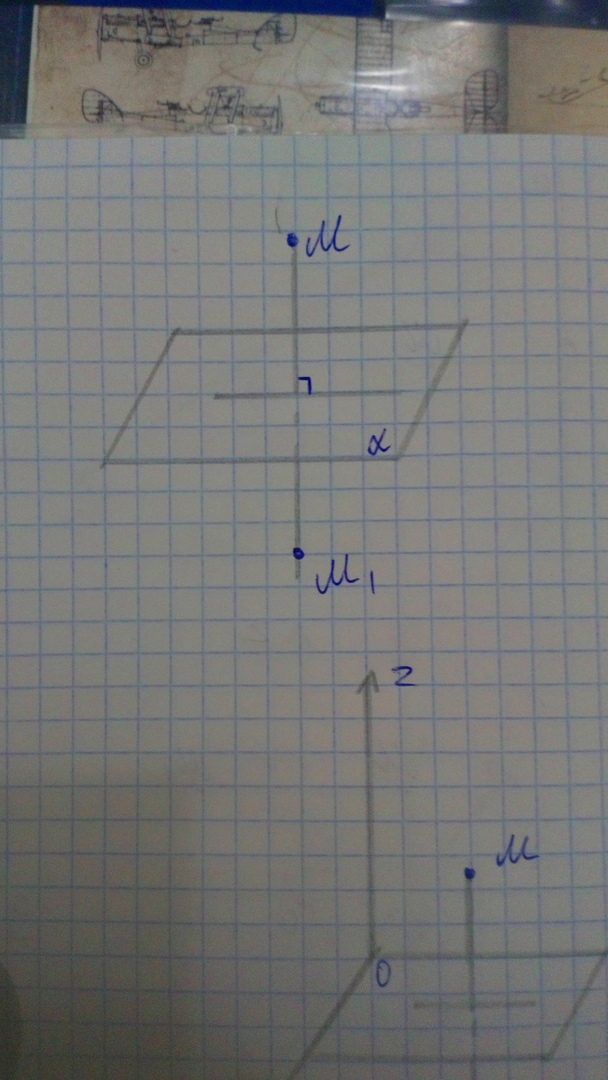 M
α
M₁
z
M
O